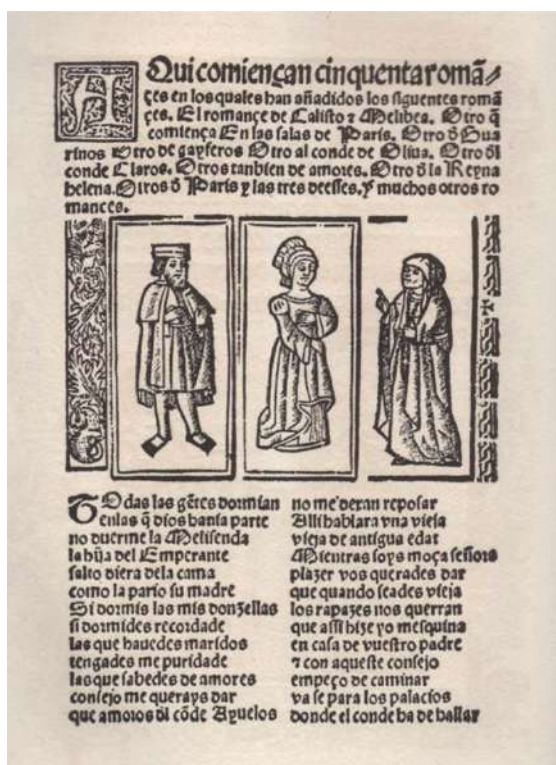 AQui comiençan cinquenta romã/
çes en los quales han añadidos los siguentes romã
çes. El romançe de Calisto ⁊ Melibea. Otro q̃
comiença En las salas de Paris. Otro õ Gua
rinos Otro de gayferos Otro al conde de Oliua. Otro õl
conde Claros. Otros tanbien de amores. Otro õ la Reyna
helena. Otros õ Paris y las tres deesses. Y muchos otros ro
mances.
TOdas las gẽtes dormian
enlas q̃ dios hauia parte
no duerme la Melisenda
la hija del Emperante
salto diera dela cama
como la pario su madre
Si dormis las mis donzellas
si dormides recordade
las que hauedes maridos
tengades me puridade
las que sabedes de amores
consejo me querays dar
que amores õl cõde Ayuelos
no me dexan reposar
Alli hablara vna vieja
vieja de antigua edat
Mientras soys moça señora
plazer vos querades dar
que quando seades vieja
los rapazes nos querran
que assi hize yo mesquina
en casa de vuestro padre
⁊ con aqueste consejo
empeço de caminar
va se para los palacios
donde el conde ha de hallar